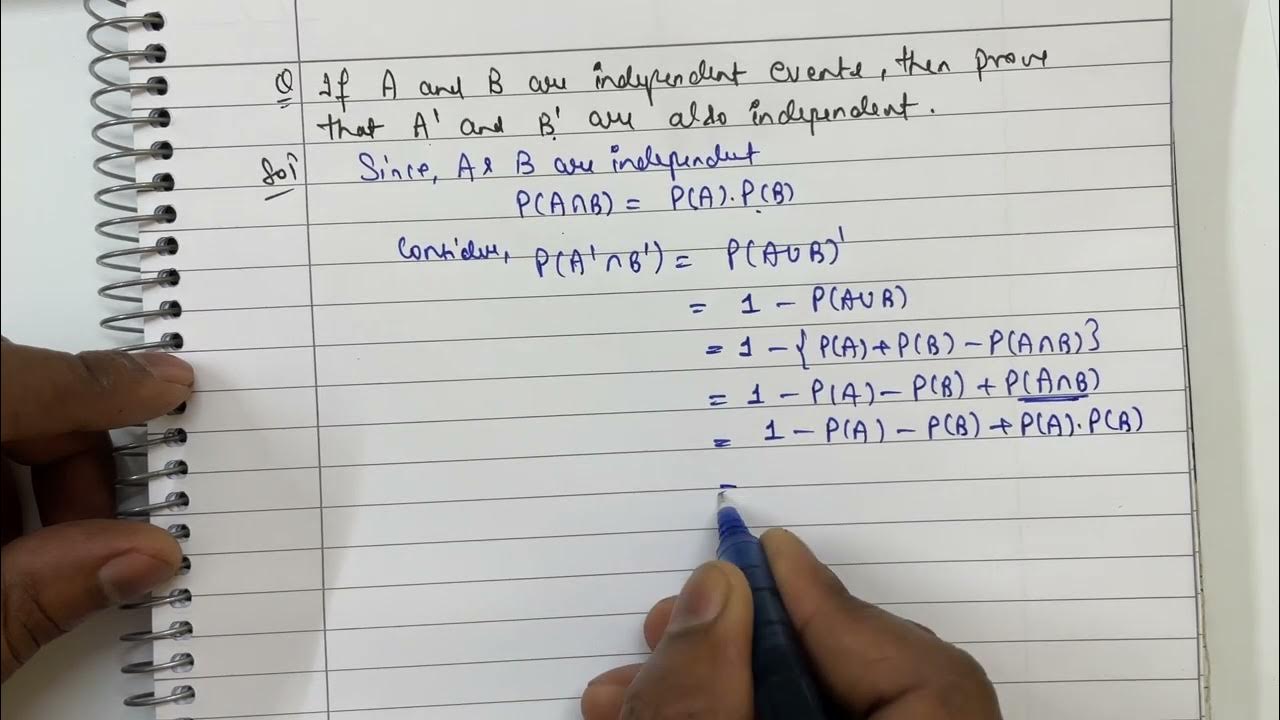 Q If A and B are independent events, then prove
that A' and B' are also independent.
Sol Since, A & B are independent
P(A∩B) = P(A).P(B)
Consider, P(A'∩B') = P(A∪B)'
= 1 - P(A∪B)
= 1 - {P(A)+P(B) - P(A∩B)}
= 1 - P(A) - P(B) + P(A∩B)
= 1 - P(A) - P(B) + P(A).P(B)
=